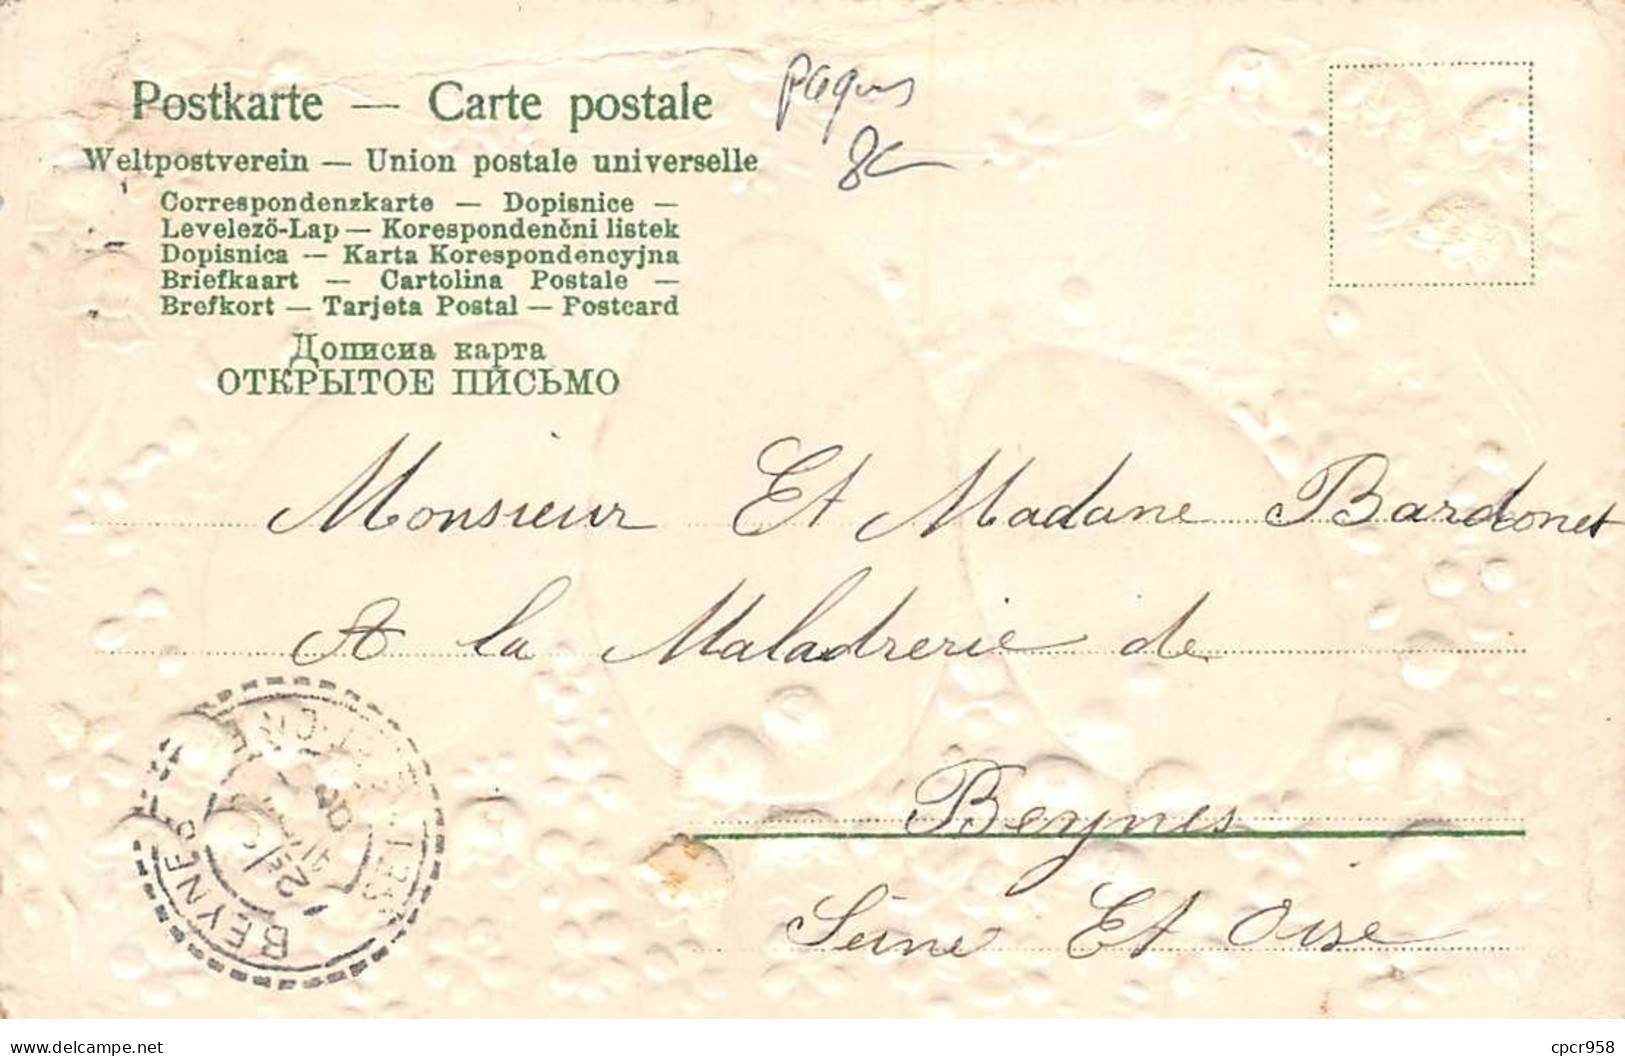 Postkarte — Carte postale
Weltpostverein — Union postale universelle
Correspondenzkarte — Dopisnice —
Levelező-Lap — Korespondenčni listek
Dopisnica — Karta Korespondencyjna
Briefkaart — Cartolina Postale —
Brefkort — Tarjeta Postal — Postcard
Дописна карта
ОТКРЫТОЕ ПИСЬМО
paques
8€
Monsieur Et Madane Bardonet
A la Maladrerie de
Beynes
Seine Et Oise
BEYNES
delcampe.net
cpcr958